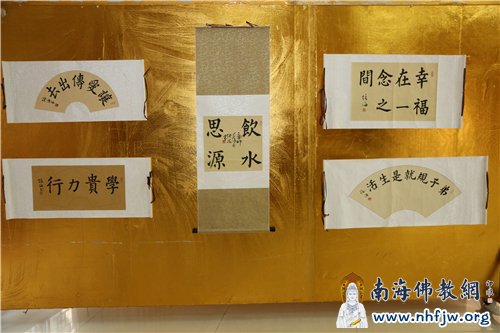 讓愛傳出去
學貴力行
飲水
思源
幸福
在一
念之
間
弟子規就是生活
南海佛教網
www.nhfjw.org